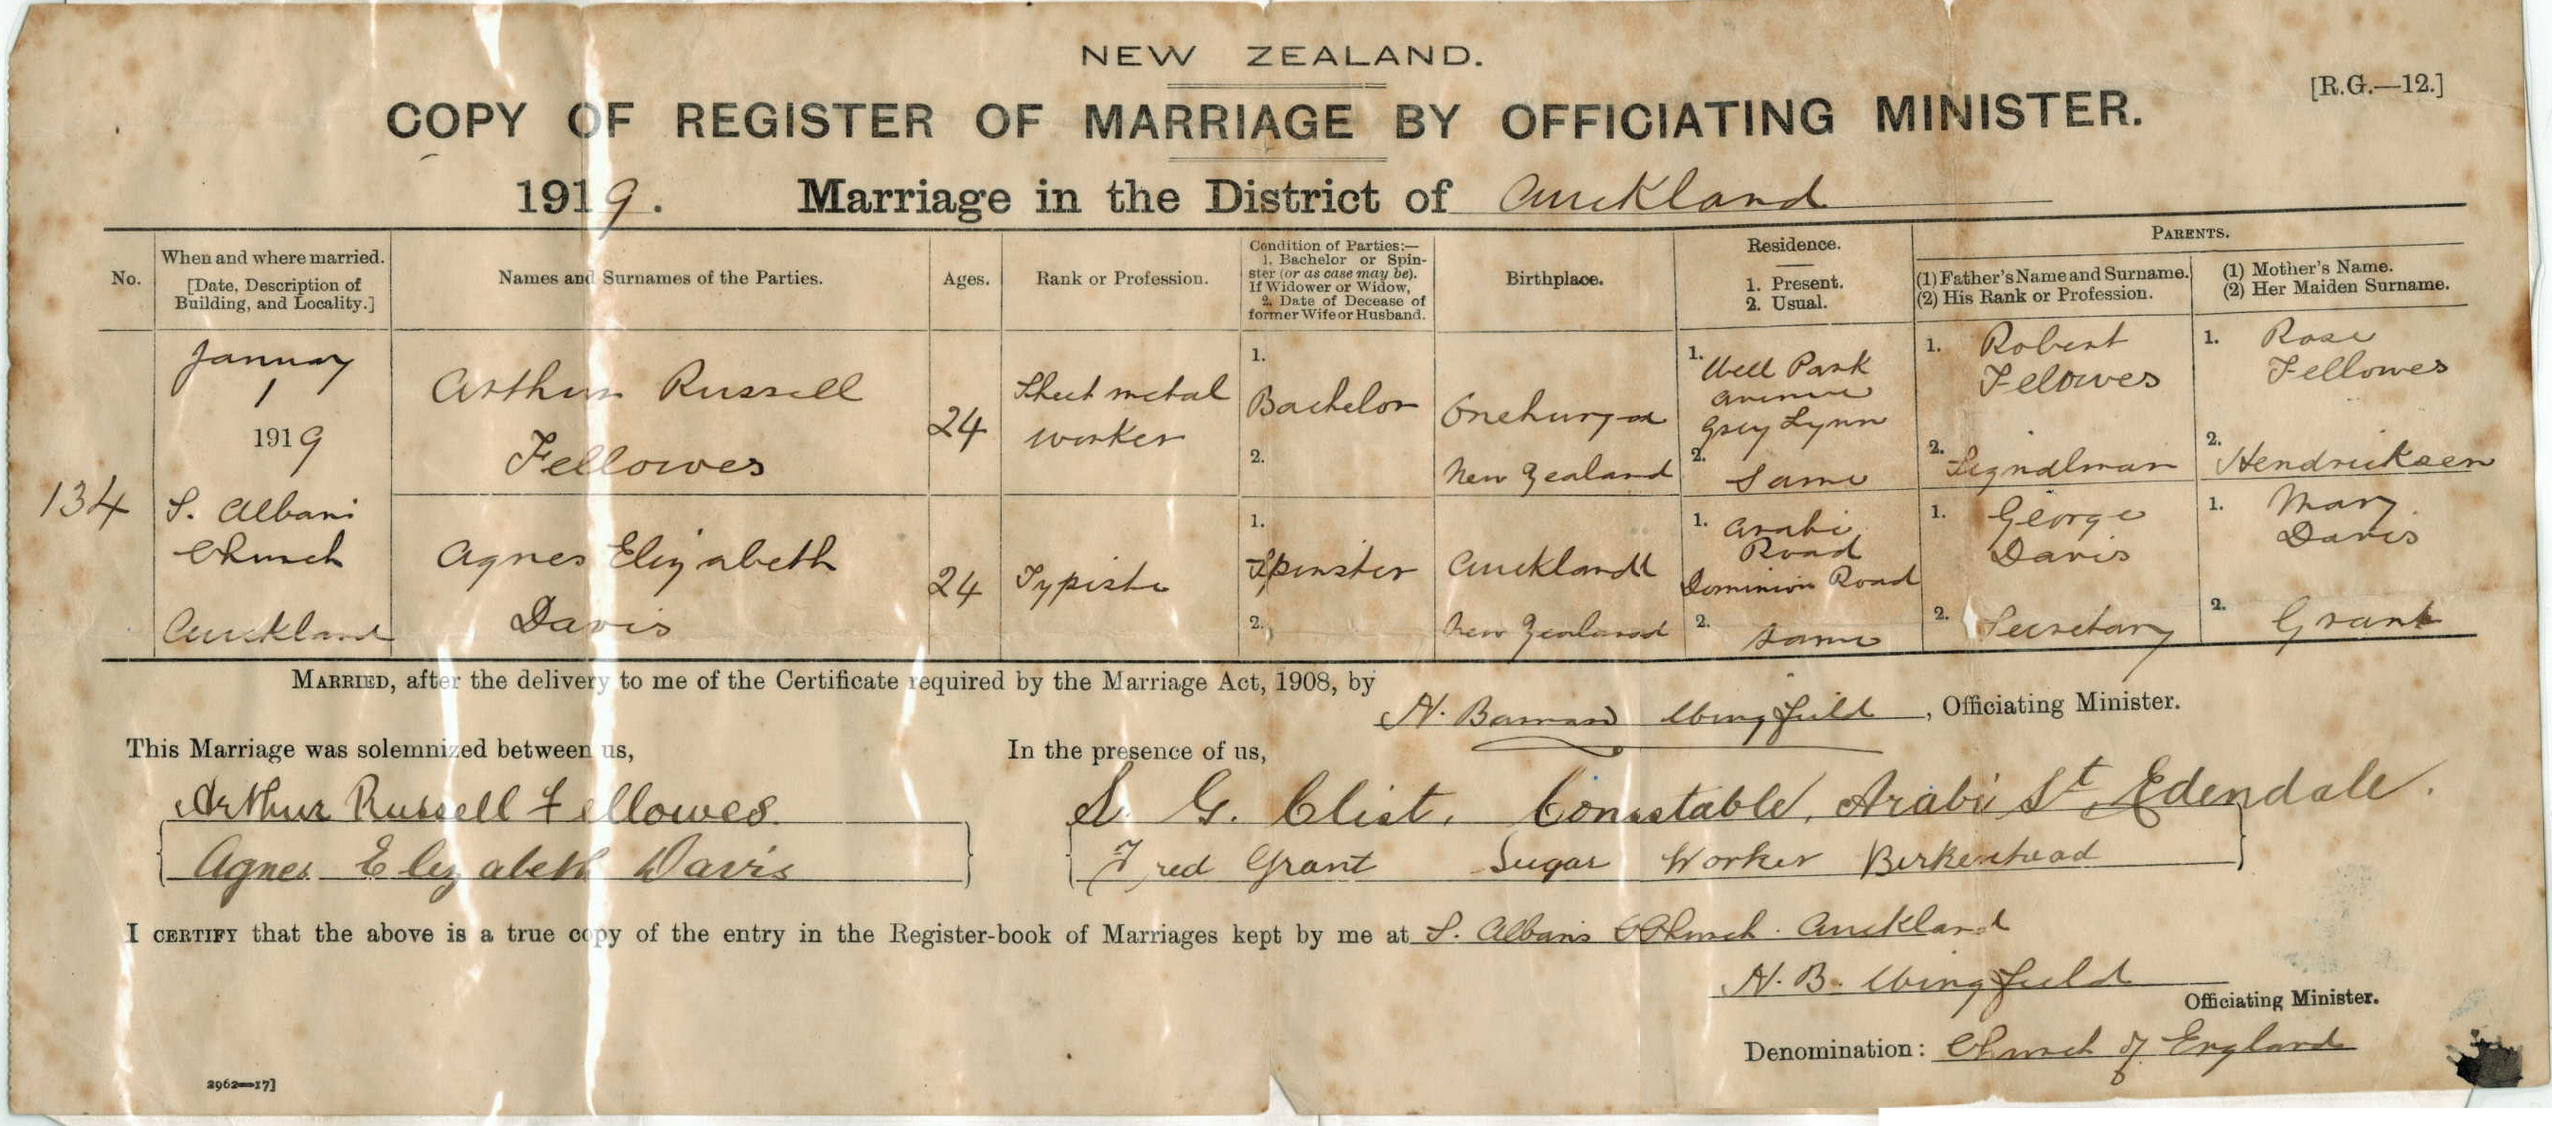 NEW ZEALAND.
[R.G.—12.]
COPY OF REGISTER OF MARRIAGE BY OFFICIATING MINISTER.
1919. Marriage in the District of Auckland
No.
When and where married.
[Date, Description of
Building, and Locality.]
Names and Surnames of the Parties.
Ages.
Rank or Profession.
Condition of Parties:—
1. Bachelor or Spin-
ster (or as case may be).
If Widower or Widow,
2. Date of Decease of
former Wife or Husband.
Birthplace.
Residence.
1. Present.
2. Usual.
PARENTS.
(1) Father's Name and Surname.
(2) His Rank or Profession.
(1) Mother's Name.
(2) Her Maiden Surname.
134
January
1
1919
S. Albans
Church
Auckland
Arthur Russell
Fellowes
24
Sheet metal
worker
1.
Bachelor
2.
Onehunga
New Zealand
1. Park
Avenue
Grey Lynn
2. Same
1. Robert
Felowes
2.
1. Rose
Fellowes
2. Hendricksen
Agnes Elizabeth
Davis
24
Typiste
1.
Spinster
2.
Auckland
New Zealand
1. Arabi
Road
Dominion Road
2. Same
1. George
Davis
2. Secretary
1. Mary
Davis
2. Grant
MARRIED, after the delivery to me of the Certificate required by the Marriage Act, 1908, by
H. Wingfield, Officiating Minister.
This Marriage was solemnized between us,
Arthur Russell Fellowes
Agnes Elizabeth Davis
In the presence of us,
G. Clist, Constable, Arabi St, Edendale.
Fred Grant Sugar Worker Birkenhead
I CERTIFY that the above is a true copy of the entry in the Register-book of Marriages kept by me at S. Albans Church. Auckland
H. B. Wingfield
Officiating Minister.
Denomination: Church of England
2962—17]